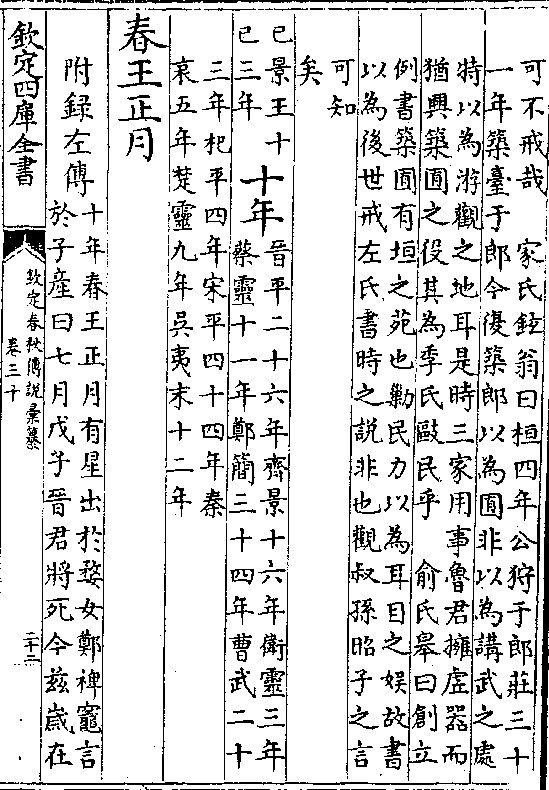 可不戒哉　家氏鉉翁曰桓四年公狩于郎莊三十
一年築臺于郎今復築郎以為囿非以為講武之處
特以為游觀之地耳是時三家用事魯君擁虚器而
猶興築囿之役其為季氏毆民乎　俞氏皋曰創立
例書築囿有垣之苑也勦民力以為耳目之娱故書
以為後世戒左氏書時之説非也觀叔孫昭子之言
可知
矣
已景王十
巳三年
十年
晉平二十六年齊景十六年衛靈三年
蔡靈十一年鄭簡三十四年曹武二十
三年杞平四年宋平四十四年秦
哀五年楚靈九年吳夷末十二年
春王正月
附録左傳
十年春王正月有星出於婺女鄭裨竈言
於子産曰七月戊子晉君將死今兹歲在
欽定四庫全書
欽定春秋傳説彙纂
卷三十
二十二